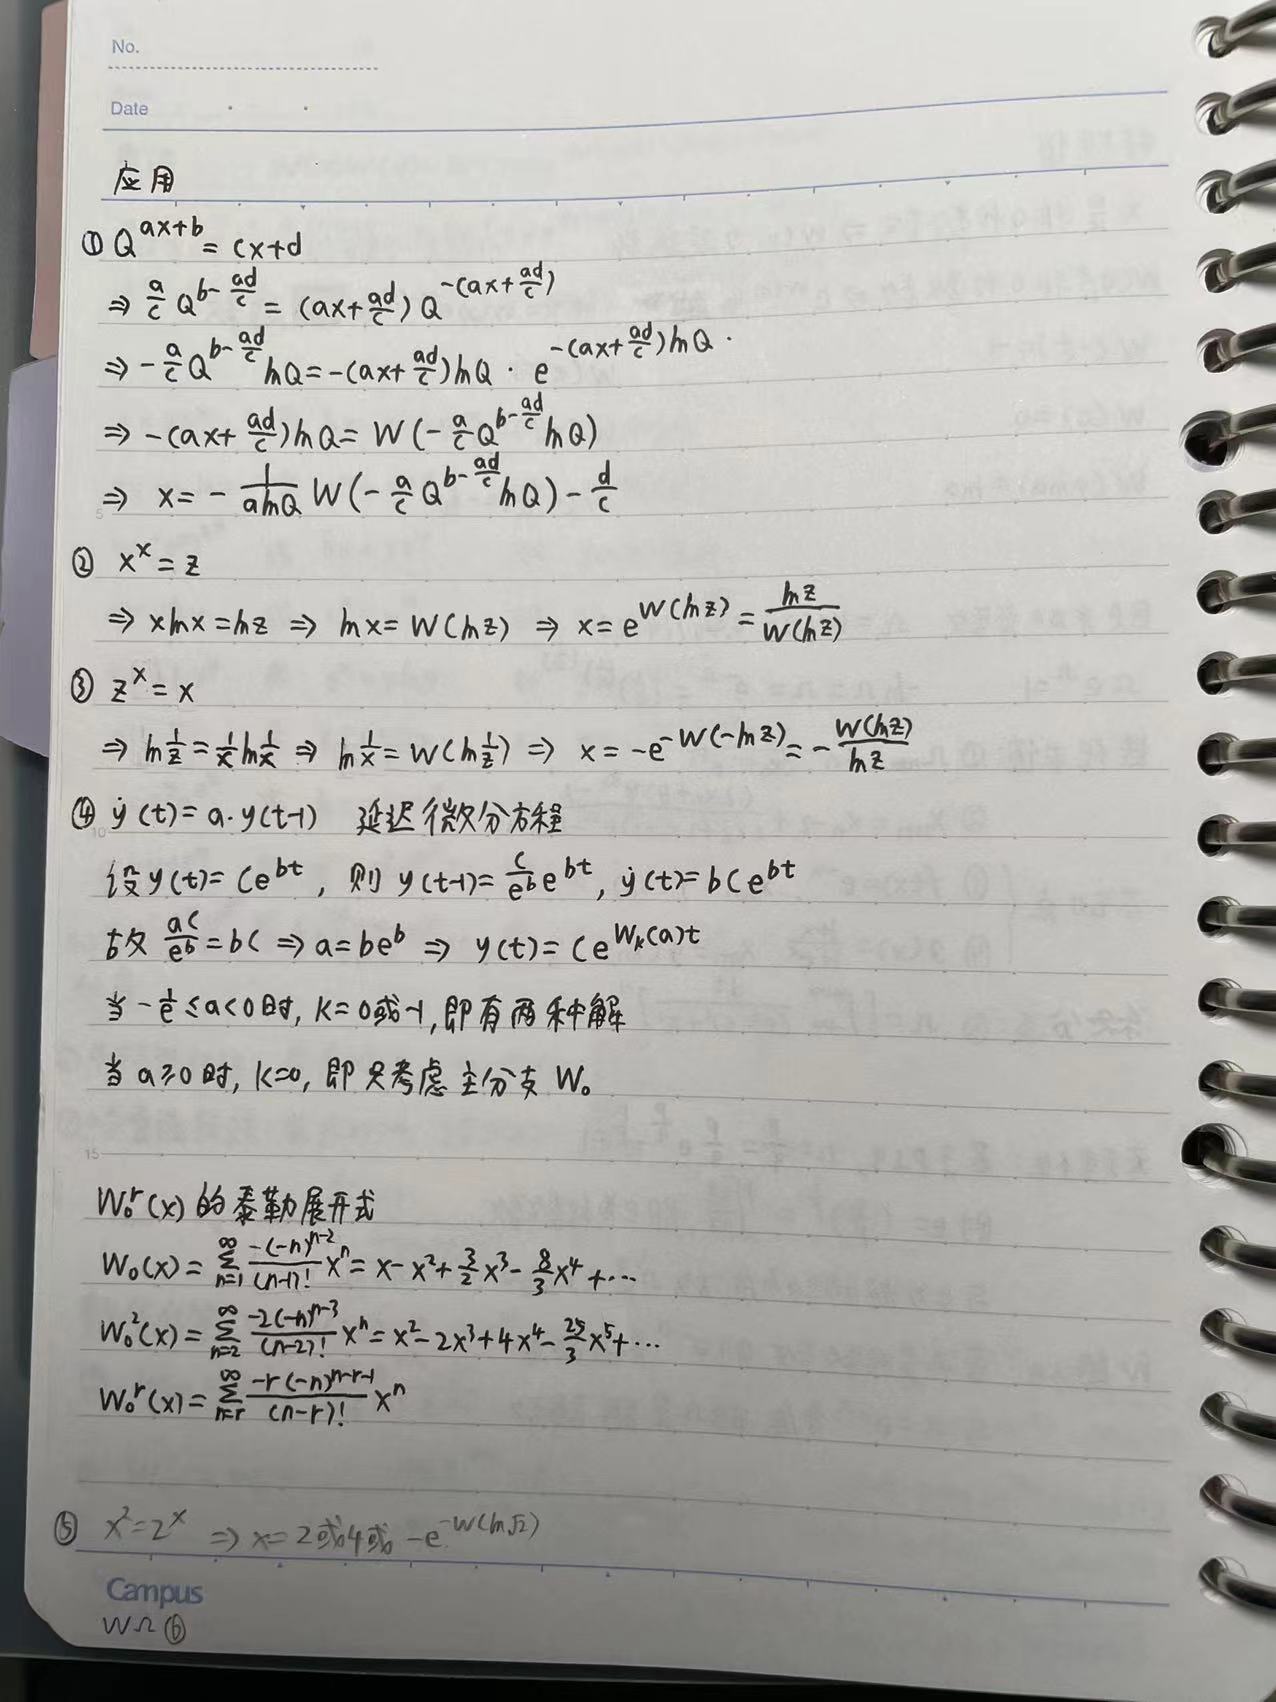 No.
Date
应用
① Q^{ax+b} = cx+d
⇒ \frac{a}{c} Q^{b-\frac{ad}{c}} = (ax+\frac{ad}{c}) Q^{-(ax+\frac{ad}{c})}
⇒ -\frac{a}{c} Q^{b-\frac{ad}{c}} lnQ = -(ax+\frac{ad}{c}) lnQ · e^{-(ax+\frac{ad}{c}) lnQ} .
⇒ -(ax+\frac{ad}{c}) lnQ = W(-\frac{a}{c} Q^{b-\frac{ad}{c}} lnQ)
⇒ x = -\frac{1}{alnQ} W(-\frac{a}{c} Q^{b-\frac{ad}{c}} lnQ) - \frac{d}{c}
5
② x^x = z
⇒ xlnx = lnz ⇒ lnx = W(lnz) ⇒ x = e^{W(lnz)} = \frac{lnz}{W(lnz)}
③ z^x = x
⇒ ln\frac{1}{z} = \frac{1}{x} ln\frac{1}{x} ⇒ ln\frac{1}{x} = W(ln\frac{1}{z}) ⇒ x = -e^{-W(-lnz)} = -\frac{W(lnz)}{lnz}
④ ẏ(t) = a·y(t-1) 延迟微分方程
10
设 y(t) = Ce^{bt}, 则 y(t-1) = \frac{C}{e^b} e^{bt}, ẏ(t) = bCe^{bt}
故 \frac{aC}{e^b} = bC ⇒ a = be^b ⇒ y(t) = Ce^{W_k(a)t}
当 -\frac{1}{e} ≤ a < 0 时, k = 0 或 -1, 即有两种解
当 a ≥ 0 时, k=0, 即只考虑主分支 W₀
15
W₀^r(x) 的泰勒展开式
W₀(x) = \sum_{n=1}^{∞} \frac{-(-n)^{n-2}}{(n-1)!} x^n = x - x² + \frac{3}{2}x³ - \frac{8}{3}x⁴ + …
W₀²(x) = \sum_{n=2}^{∞} \frac{-2(-n)^{n-3}}{(n-2)!} x^n = x² - 2x³ + 4x⁴ - \frac{25}{3}x⁵ + …
W₀^r(x) = \sum_{n=r}^{∞} \frac{-r(-n)^{n-r-1}}{(n-r)!} x^n
⑤ x² = 2^x ⇒ x = 2或4或 -e^{-W(ln√2)}
Campus
WΩ ⑥